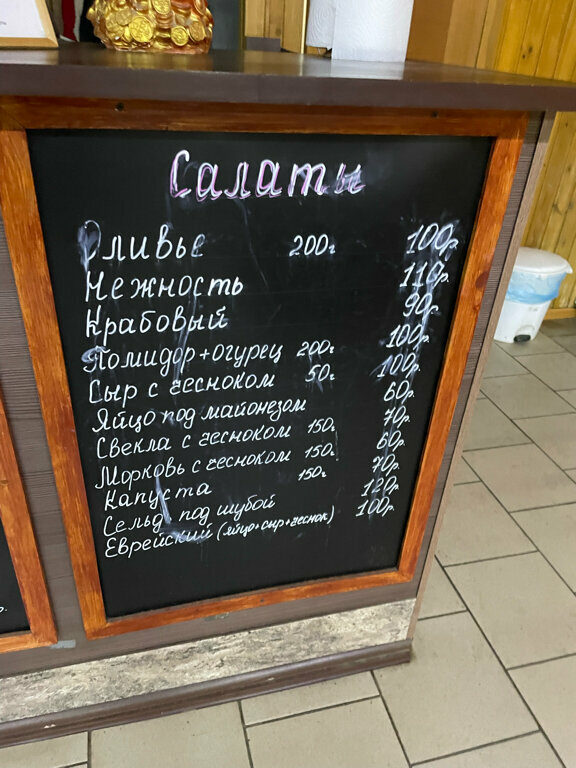 Салаты
Оливье 200г 100р.
Нежность 110р.
Крабовый 90р.
Помидор+огурец 200г 100р.
Сыр с чесноком 50г 100р.
Яйцо под майонезом 60р.
Свекла с чесноком 150г 70р.
Морковь с чесноком 150г 60р.
Капуста 150г 70р.
Сельд под шубой 120р.
Еврейский (яйцо+сыр+чеснок) 100р.
р.